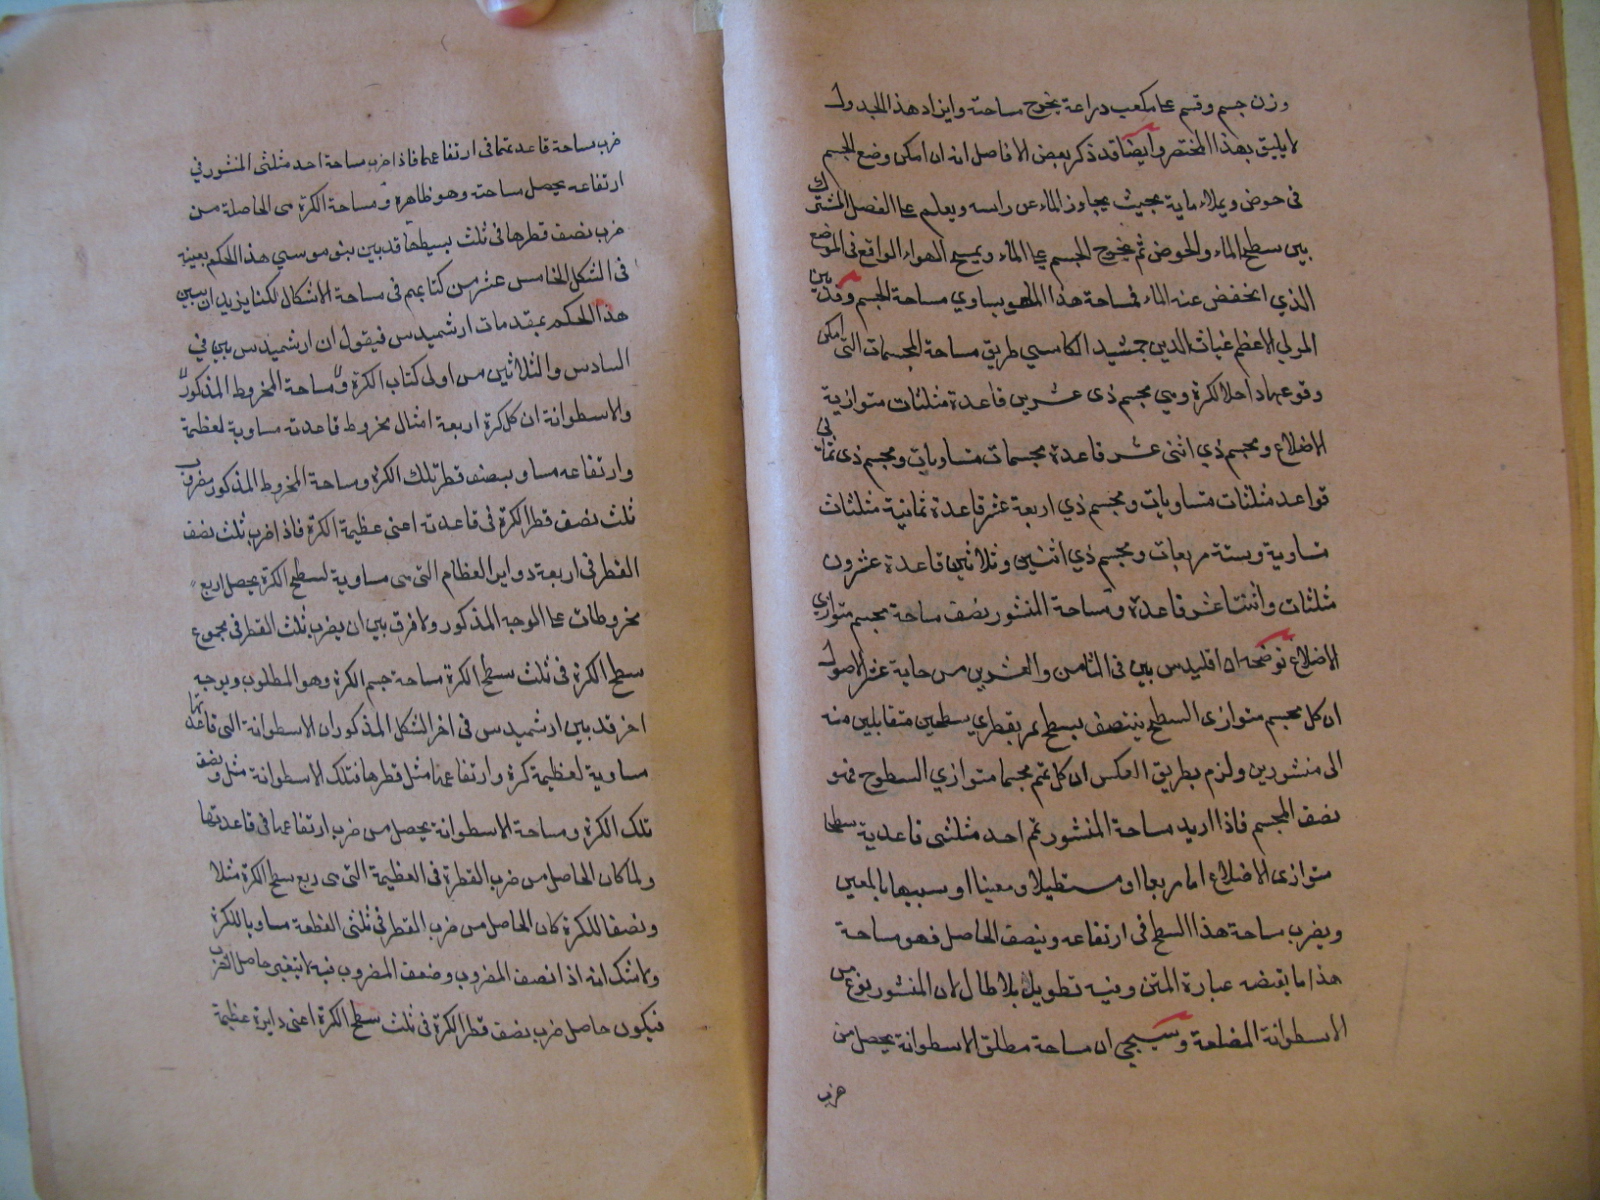 وزن جسم وقسم على مكعب دراعة يخرج مساحته وايراد هذا الجدول
لا يليق بهذا المختصر وايضا قد ذكر بعض الافاصل انه ان امكن وضع الجسم
فى حوض ويملاء مايه بحيث يجاوز الماء عن راسه ويعلم على الفصل المشترك
بين سطح الماء والحوض ثم يخرج الجسم عن الماء ويمسح الهواء الواقع فى الموضع
الذي انخفض عنه الماء فمساحة هذا الهوا يساوي مساحة الجسم وقد بين
المولي الاعظم غياث الدين جمشيد الكاسي طريق مساحة المجسمات التى امكن
وقوعها داخل الكرة وهي مجسم ذى عشرين قاعدة مثلثات متوازية
الاضلاع ومجسم ذي اثنى عشر قاعدة مجسمات متساويات ومجسم ذى ثمانى
قواعد مثلثات متساويات ومجسم ذي اربعة عشر قاعدة ثمانية مثلثات
متساوية وستة مربعات ومجسم ذي اثنين وثلاثين قاعدة عشرون
مثلثات واثنتا عشر قاعدة ومساحة المنشور نصف مساحة مجسم متوازي
الاضلاع توضحه ان اقليدس بين فى الثامن والعشرين من حاية عشر الاصول
ان كل مجسم متوازى السطح ينتصف بسطح يمر بقطري سطحين متقابلين منه
الى منشورين ولزم بطريق العكس ان كل تمم مجسما متوازي السطوح فهو
نصف المجسم فاذا اريد مساحة المنشور تمم احد مثلثى قاعديه سطحا
متوازى الاضلاع اما مربعا او مستطيلا ومعينا او سبيها بالمعين
ويضرب مساحة هذا السطح فى ارتفاعه وينصف الحاصل فهو مساحة
هذا ما يقتضه عبارة المتن وفيه تطويل بلا طال لان المنشور نوع من
الاسطوانة المضلعة وسيجي ان مساحة مطلق الاسطوانة يحصل من
ضرب
ضرب مساحة قاعدتها فى ارتفاعها فاذا ضرب مساحة احد مثلثى المنشور في
ارتفاعه يحصل مساحته وهو ظاهره ومساحة الكرة هى الحاصلة من
ضرب نصف قطرها فى ثلث بسيطها قد بين بنو موسي هذا الحكم بعينه
فى الشكل الخامس عشر من كتابهم فى مساحة الاشكال لكنا يزيد ان يبين
هذا الحكم بمقدمات ارشميدس فيقول ان ارشميدس بين في
السادس والثلاثين من اولى كتاب الكرة ومساحة المخروط المذكور
والاسطوانة ان كل كرة اربعة امثال مخروط قاعدته مساوية لعظيمة
وارتفاعه مساو بنصف قطر تلك الكرة ومساحة المخروط المذكور مضروب
ثلث نصف قطر الكرة فى قاعدته اعنى عظيمة الكرة فاذا ضرب ثلث نصف
القطر فى اربعة دواير العظام التى هى مساوية لسطح الكرة يحصل اربع
مخروطات على الوجه المذكور ولا فرق بين ان يضرب ثلث القطر فى مجموع
سطح الكرة فى ثلث سطح الكرة مساحة جسم الكرة وهو المطلوب وبوجه
اخر قد بين ارشميدس فى اخر الشكل المذكور ان الاسطوانة التى قاعدتها
مساوية لعظيمة كرة وارتفاعها مثل قطرها فتلك الاسطوانة مثل ونصف
تلك الكرة ومساحة الاسطوانة يحصل من ضرب ارتفاعها فى قاعدتها
ولما كان الحاصل من ضرب القطرة فى العظيمة التى هى ربع سطح الكرة مثلا
ونصفا للكرة كان الحاصل من ضرب القطر فى ثلثى القطعة مساويا للكرة
ولا شك انه اذا نصف المضروب وضعف المضروب فيه لا يتغير حاصل الضرب
فيكون حاصل ضرب نصف قطر الكرة فى ثلث سطح الكرة اعنى دايرة عظيمة